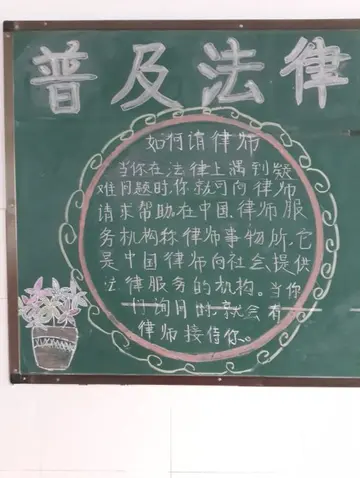 普及法律
如何请律师
当你在法律上遇到疑
难问题时,你就可向律师
请求帮助在中国,律师服
务机构称律师事物所,它
是中国律师向社会提供
法律服务的机构。当你
询问时,就会有
律师接待你。